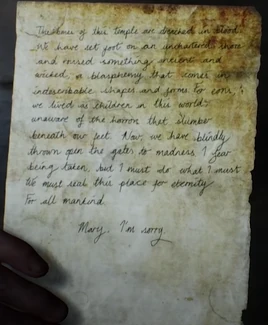 The bones of this temple are drenched in blood.
We have set foot on an unchartered shore
and raised something ancient and
wicked, a blasphemy that comes in
indescribable shapes and forms. For eons,
we lived as children in this world,
unaware of the horrors that slumber
beneath our feet. Now, we have blindly
thrown open the gates to madness. I fear
being taken, but I must do what I must
We must seal this place for eternity
For all mankind.
Mary, I'm sorry